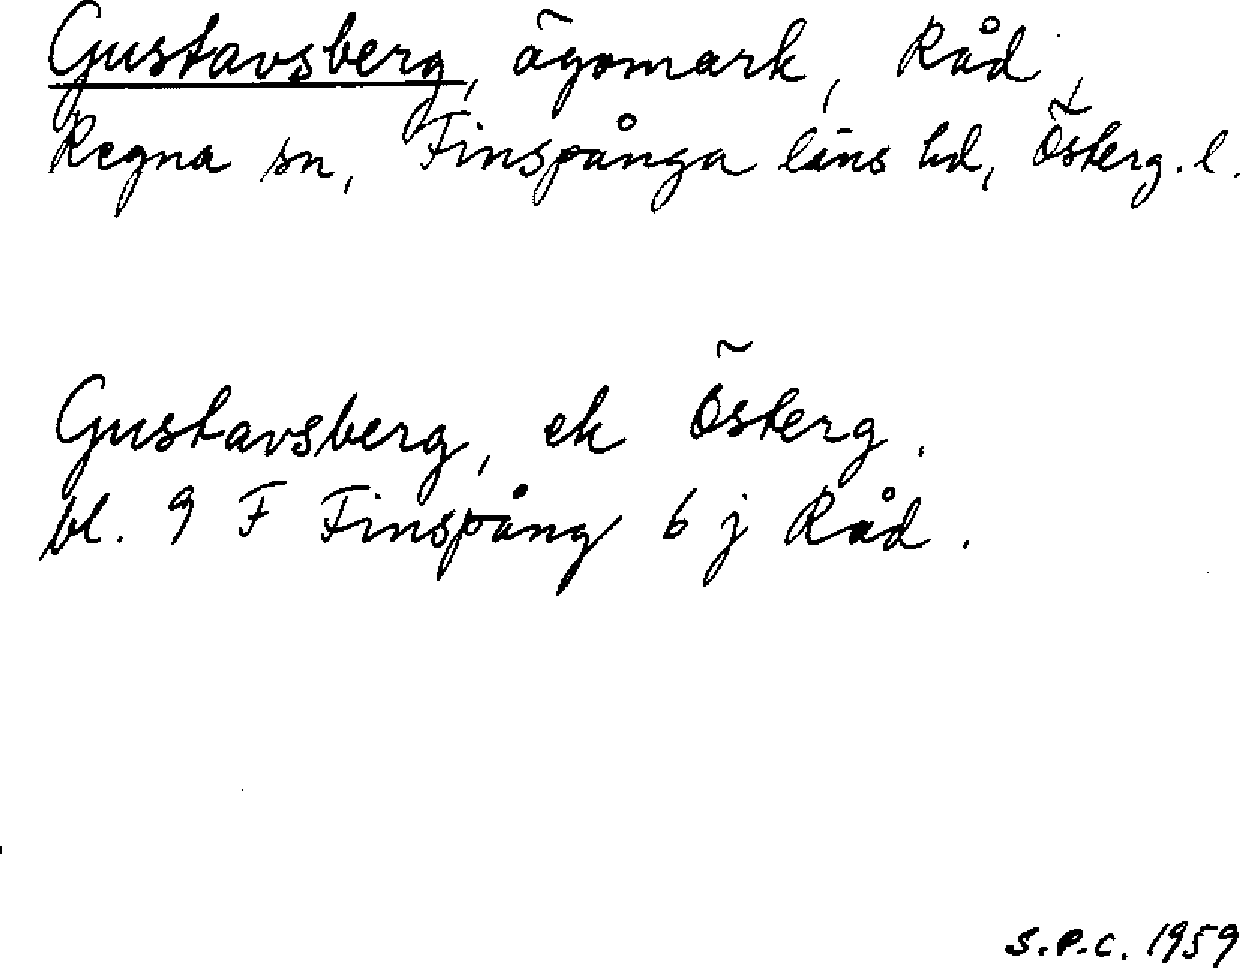 Gustavsberg, ägomark, Råd,
Regna sn, Finspånga läns hd, Österg. l.
Gustavsberg, ek Österg.
bl. 9 F Finspång 6 j Råd.
S.P.C. 1959